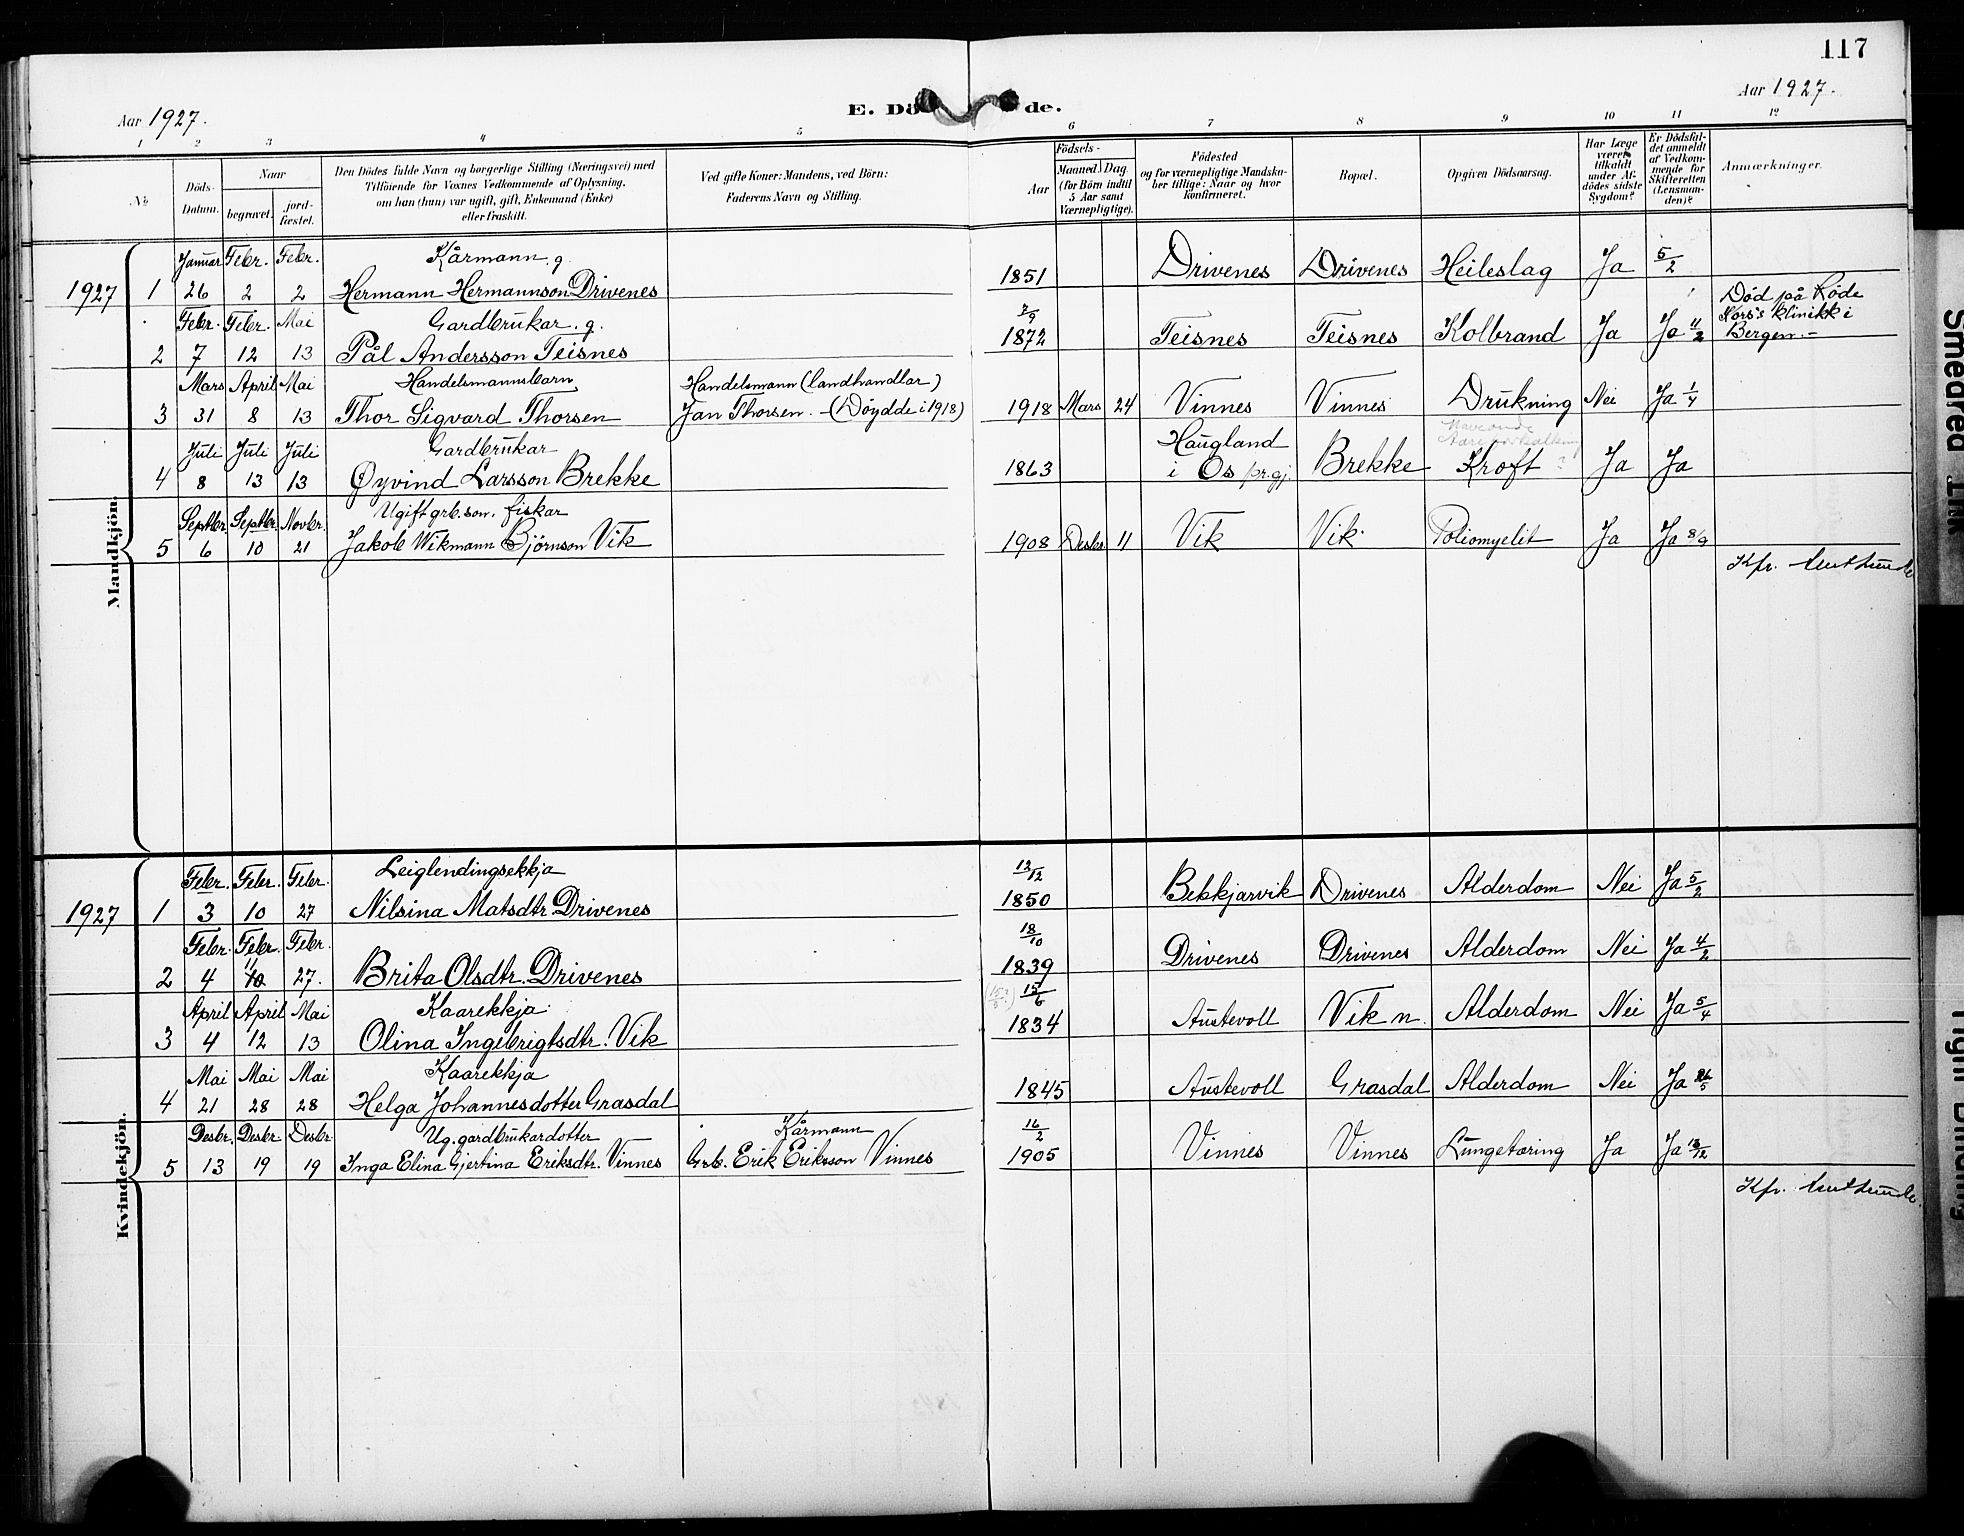 117
Aar 1927.
E. Dö de.
Aar 1927.
1 2 3 4 5 6 7 8 9 10 11 12
No
Döds-
Datum.
Naar
begravet.
jord-
fæstet.
Den Dödes fulde Navn og borgerlige Stilling (Næringsvei) med
Tilföiende for Voxnes Vedkommende af Oplysning,
om han (hun) var ugift, gift, Enkemand (Enke)
eller fraskilt.
Ved gifte Koner: Mandens, ved Börn:
Faderens Navn og Stilling.
Födsels-
Aar
Maaned
Dag
(for Börn indtil
5 Aar samt
Værnepligtige).
Födested
og for værnepligtige Mandska-
ber tillige: Naar og hvor
konfirmeret.
Bopæl.
Opgiven Dödsaarsag.
Har Læge
været
tilkaldt
under Af-
dödes sidste
Sygdom?
Er Dödsfal-
det anmeldt
af Vedkom-
mende for
Skifteretten
(Lensman-
den)?
Anmærkninger.
Mandkjön.
Januar Febr. Febr. Kårmann. g.
1927 1 26 2 2 Hermann Hermannson Drivenes 1851 Drivenes Drivenes Heileslag Ja 5/2
Febr. Febr. Mai Gardbrukar. g. 2/9
2 7 12 13 Pål Andersson Teisnes 1872 Teisnes Teisnes Kolbrand Ja Ja 11/2
Död på Röde
Kors's klinikk i
Bergen.-
Mars April Mai Handelsmannsbarn Handelsmann (landhandlar)
3 31 8 13 Thor Sigvard Thorsen Jan Thorsen. - (Döydde i 1918) 1918 Mars 24 Vinnes Vinnes Drukning Nei Ja 1/4
Juli Juli Juli Gardbrukar Haugland
4 8 13 13 Øyvind Larsson Brekke 1863 i Os pr.gj. Brekke Kroft ? Ja Ja
Septbr. Septbr. Novbr. Ugift grb. son, fiskar
5 6 10 21 Jakob Wikmann Björnson Vik 1908 Desbr 11 Vik Vik. Poliomyelit Ja Ja 8/9
Kfr.
Kvindekjön.
Febr. Febr. Febr. Leiglendingsekkja 12/12
1927 1 3 10 27 Nilsina Matsdtr. Drivenes 1850 Bekkjarvik Drivenes Alderdom Nei Ja 5/2
Febr. Febr. Febr. 18/10
2 4 11 10 27. Brita Olsdtr. Drivenes 1839 Drivenes Drivenes Alderdom Nei Ja 4/2
April April Mai Kaarekkja 15/6
3 4 12 13 Olina Ingebrigtsdtr. Vik 1834 Austevoll Vik n. Alderdom Nei Ja 5/4
Mai Mai Mai Kaarekkja
4 21 28 28 Helga Johannesdotter Grasdal 1845 Austevoll Grasdal Alderdom Nei Ja
Desbr. Desbr. Desbr. Ug. gardbrukardotter Kårmann 16/2
5 13 19 19 Inga Elina Gjertina Eriksdtr. Vinnes Grb. Erik Eriksson Vinnes 1905 Vinnes Vinnes Lungetæring Ja Ja 13/12
Kfr.